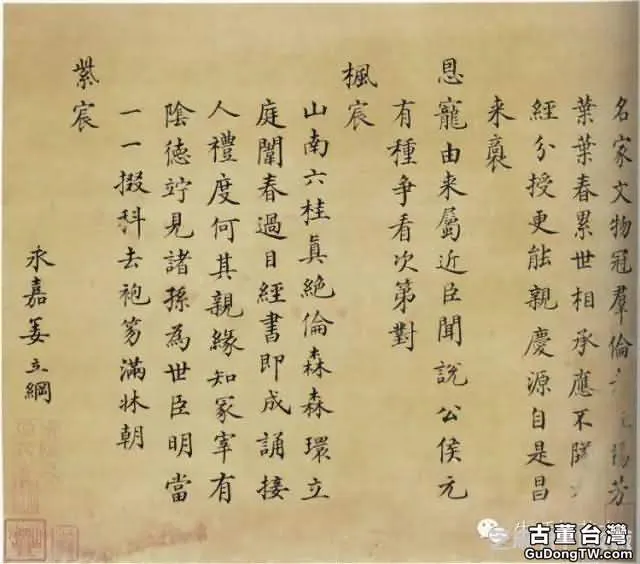 名家文物冠羣倫 芳
葉葉春累世相承應不
經分授更能親慶源自是昌
来裔
恩寵由来屬近臣聞說公侯元
有種争看次第對
楓宸
山南六桂眞絶倫森森環立
庭闈春過目經書即成誦接
人禮度何其親緣知冢宰有
陰德竚見諸孫為世臣明當
一一掇科去袍笏滿牀朝
紫宸
永嘉姜立綱
古董台灣
GuDongTW.com